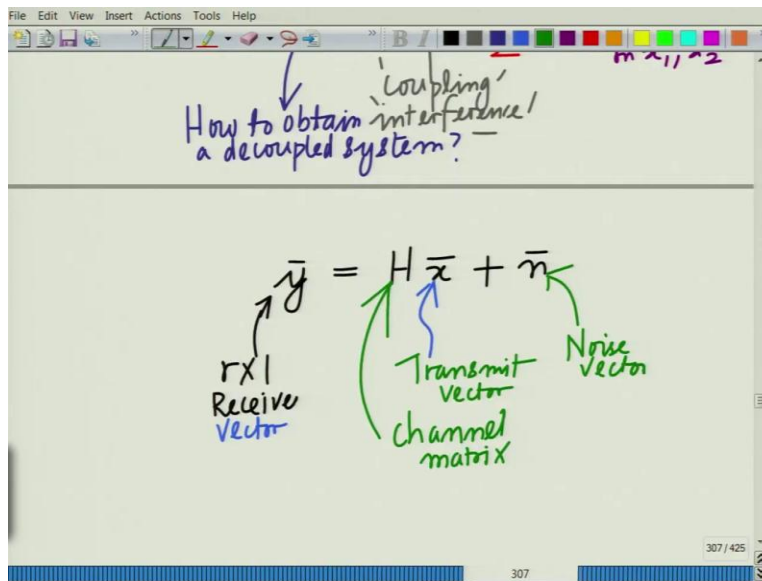 File Edit View Insert Actions Tools Help
B I
'coupling'
'interference'
How to obtain
a decoupled system?
ȳ = H x̄ + n̄
r×1
Receive
vector
Transmit
vector
Noise
vector
channel
matrix
307/425
307